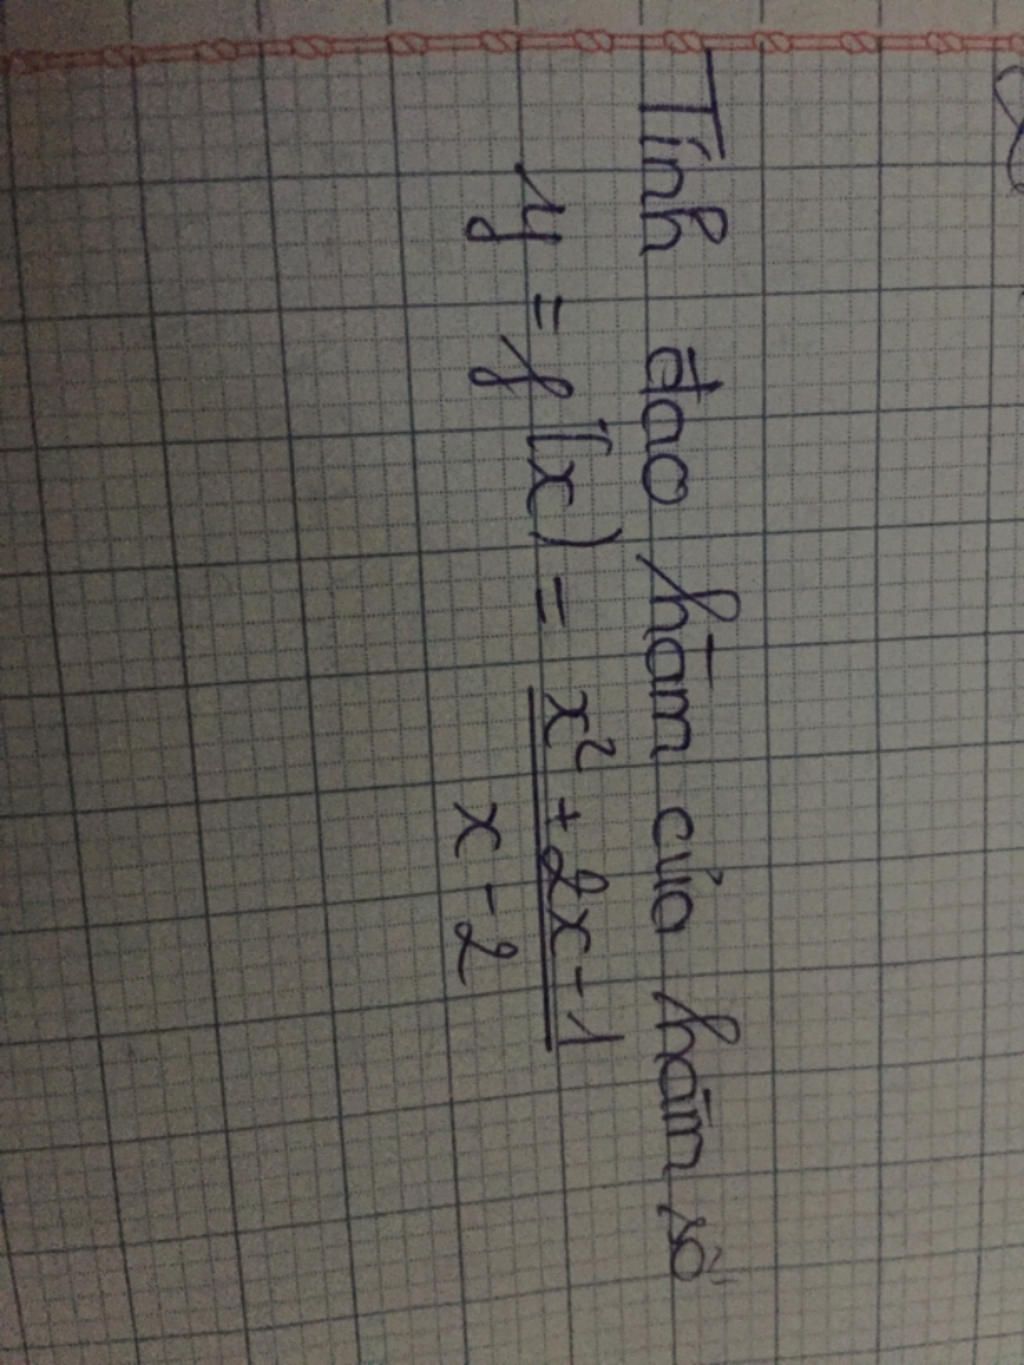 Tính đao hàm của hàm số
y = f(x) = x² + 2x - 1
x - 2